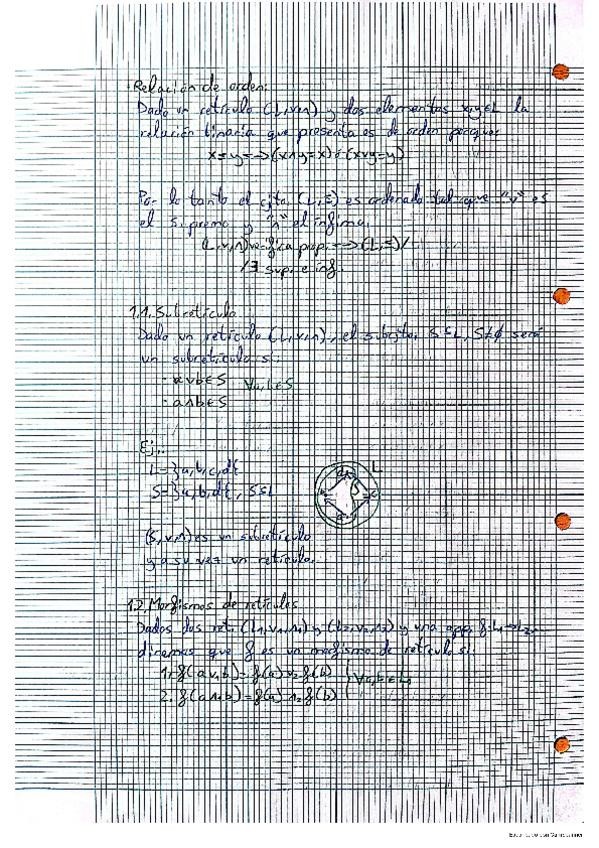 Relación de orden:
Dado un retículo (L,∨,∧) y dos elementos x,y∈L la
relación binaria que presenta es de orden porque:
x≤y⟺(x∧y=x) ó (x∨y=y)
Por lo tanto el cjto. (L,≤) es ordenado tal que "∨" es
el supremo y "∧" el ínfimo.
(L,∨,∧) verifica prop. ⟺ (L,≤)/
/∃ sup. e ínf.
1.1. Subretículo
Dado un retículo (L,∨,∧), el subcjto. S⊆L, S≠∅ será
un subretículo si:
· a∨b∈S ∀a,b∈S
· a∧b∈S
Ej.:
L={a,b,c,d}
S={a,b,d}, S⊆L
L
S
(S,∨,∧) es un subretículo
y a su vez un retículo.
1.2. Morfismos de retículos
Dados dos ret. (L₁,∨₁,∧₁) y (L₂,∨₂,∧₂) y una app. f:L₁→L₂,
diremos que f es un morfismo de retículo si:
1. f(a∨₁b)=f(a)∨₂f(b) ∀a,b∈L₁
2. f(a∧₁b)=f(a)∧₂f(b)